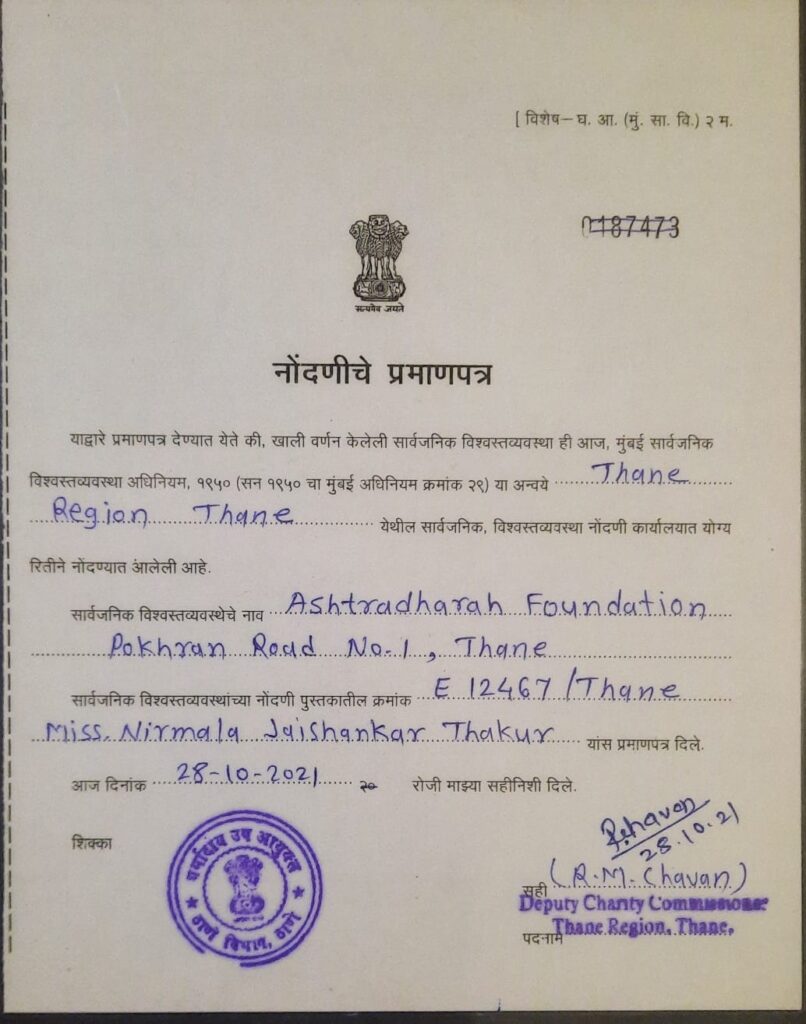 [ विशेष— घ. आ. (मुं. सा. वि.) २ म.
0187473
सत्यमेव जयते
नोंदणीचे प्रमाणपत्र
याद्वारे प्रमाणपत्र देण्यात येते की, खाली वर्णन केलेली सार्वजनिक विश्वस्तव्यवस्था ही आज, मुंबई सार्वजनिक
विश्वस्तव्यवस्था अधिनियम, १९५० (सन १९५० चा मुंबई अधिनियम क्रमांक २९) या अन्वये Thane
Region Thane येथील सार्वजनिक, विश्वस्तव्यवस्था नोंदणी कार्यालयात योग्य
रितीने नोंदण्यात आलेली आहे.
सार्वजनिक विश्वस्तव्यवस्थेचे नाव Ashtradharah Foundation
Pokhran Road No-1, Thane
सार्वजनिक विश्वस्तव्यवस्थांच्या नोंदणी पुस्तकातील क्रमांक E 12467/Thane
Miss. Nirmala Jaishankar Thakur यांस प्रमाणपत्र दिले.
आज दिनांक 28-10-2021 २० रोजी माझ्या सहीनिशी दिले.
शिक्का
धर्मादाय उप आयुक्त
ठाणे विभाग, ठाणे
RChavan
28.10.21
सही (R.M. Chavan)
Deputy Charity Commissioner
Thane Region, Thane.
पदनाम